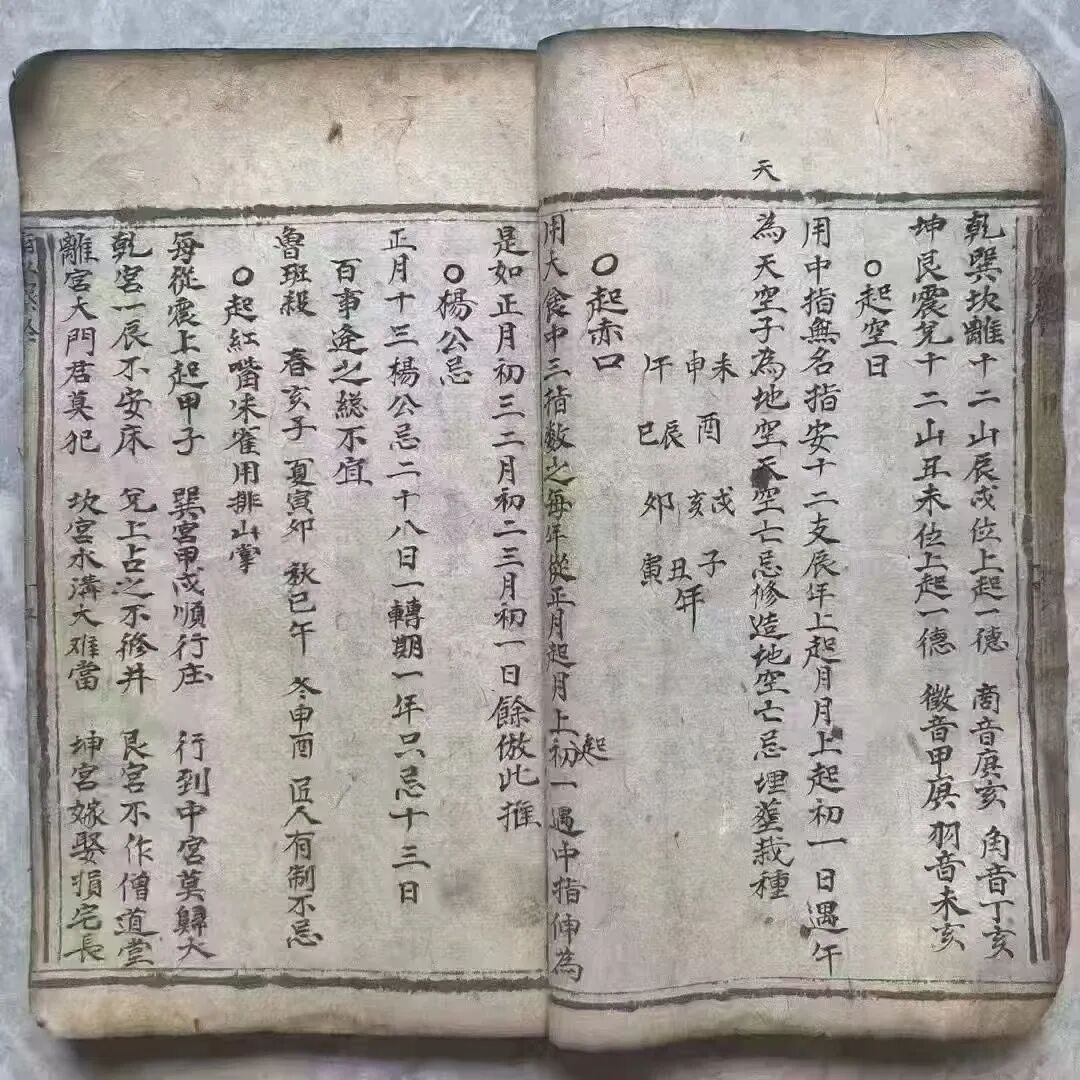 乾巽坎離十二山辰戌位上起一德　商音庚亥　角音丁亥
坤艮震兌十二山丑未位上起一德　徵音甲庚　羽音未亥
○起空日
用中指無名指安十二支辰年上起月月上起初一日遇午
天
為天空子為地空天空亡忌修造地空亡忌埋葬栽種
未　酉　戌　子
申　　亥　丑
午　辰　　年
巳　卯　寅
○起赤口
用大食中三指數之每年從正月起月上起初一遇中指伸為
是如正月初三二月初二三月初一日餘倣此推
○楊公忌
正月十三楊公忌二十八日一轉期一年只忌十三日
百事逢之總不宜
魯班殺　春亥子　夏寅卯　秋巳午　冬申酉　匠人有制不忌
○起紅嘴朱雀用排山掌
每從震上起甲子　巽宮甲戌順行庄　行到中宮莫歸火
乾宮一辰不安床　兌上占之不修井　艮宮不作僧道堂
離宮大門君莫犯　坎宮水溝大难當　坤宮嫁娶損宅長